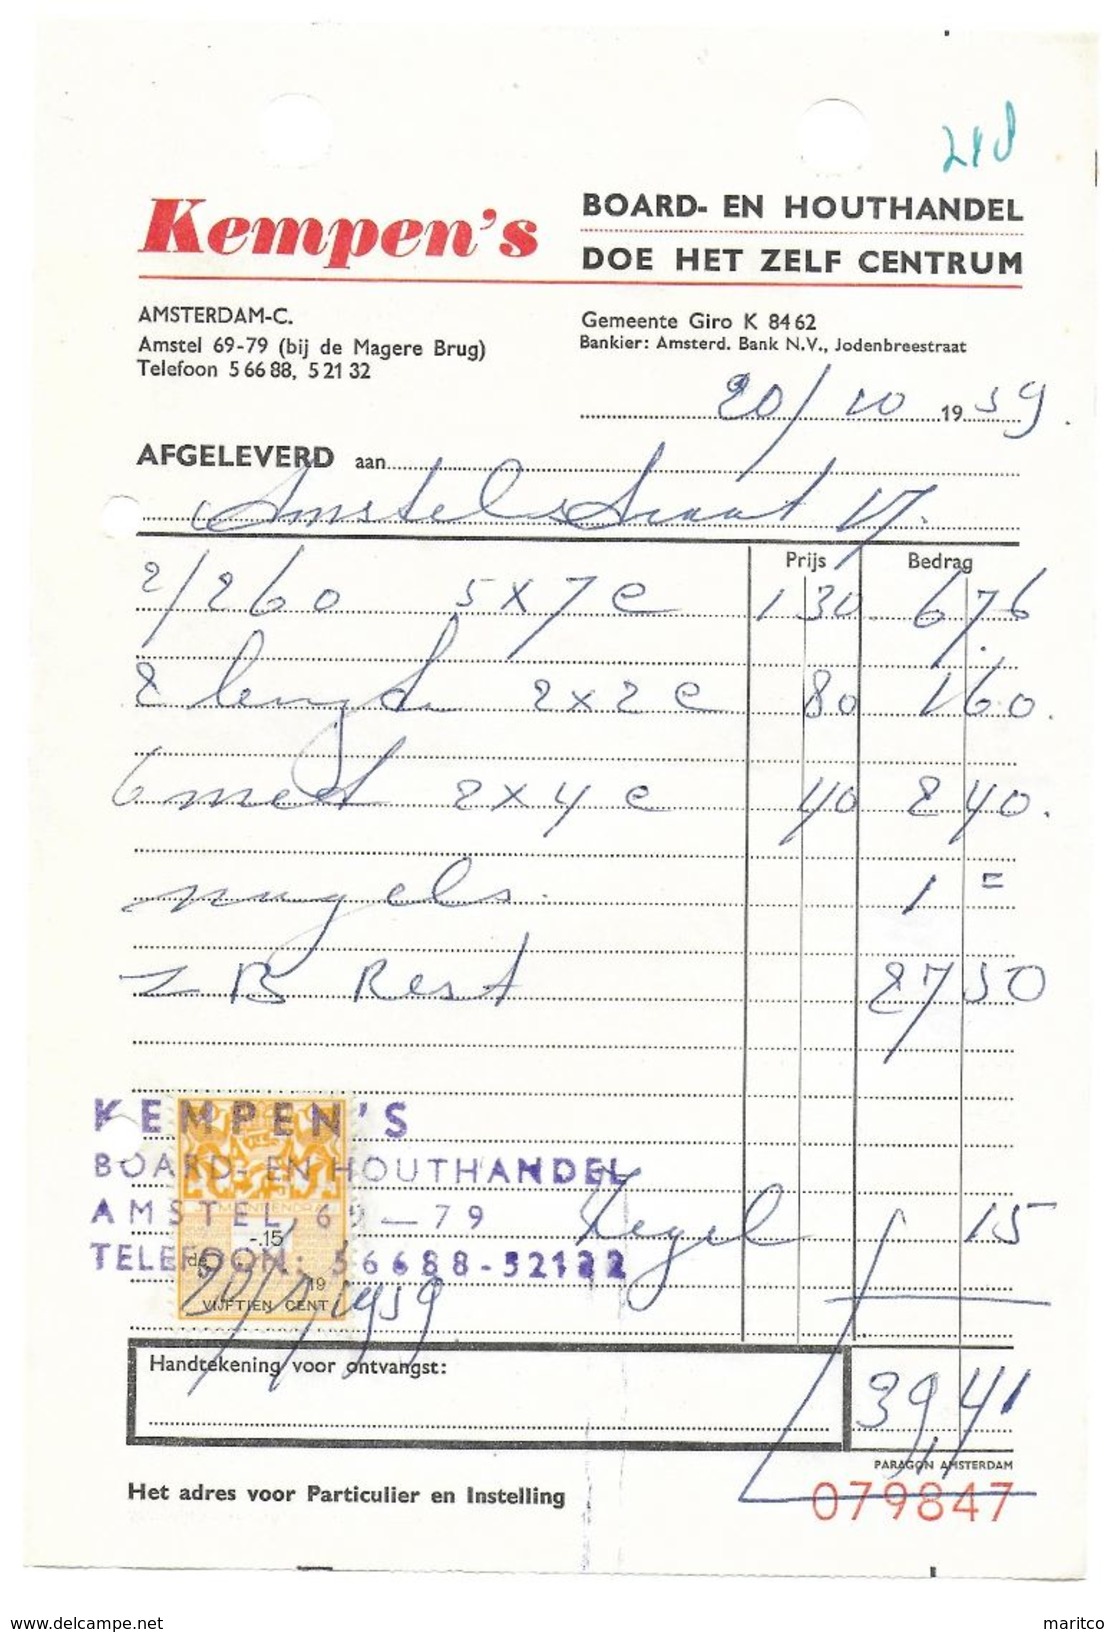 218
Kempen's
BOARD- EN HOUTHANDEL
DOE HET ZELF CENTRUM
AMSTERDAM-C.
Amstel 69-79 (bij de Magere Brug)
Telefoon 5 66 88, 5 21 32
Gemeente Giro K 8462
Bankier: Amsterd. Bank N.V., Jodenbreestraat
20/10 1959.
AFGELEVERD aan
Amstelstraat 17.
Prijs Bedrag
2/260 5 x 7 c 1 30 6 76
2 lengte 2 x 2 c 80 1 60.
6 met 2 x 4 c 40 2 40.
nagels. 1 =
Z B Rest 27 50
KEMPEN'S
BOARD- EN HOUTHANDEL
AMSTEL, 69-79
TELEFOON: 56688-52132
-.15
de
19
VIJFTIEN CENT
20/10 1959
Zegel 15
Handtekening voor ontvangst:
39,41
PARAGON AMSTERDAM
Het adres voor Particulier en Instelling
079847
www.delcampe.net
maritco